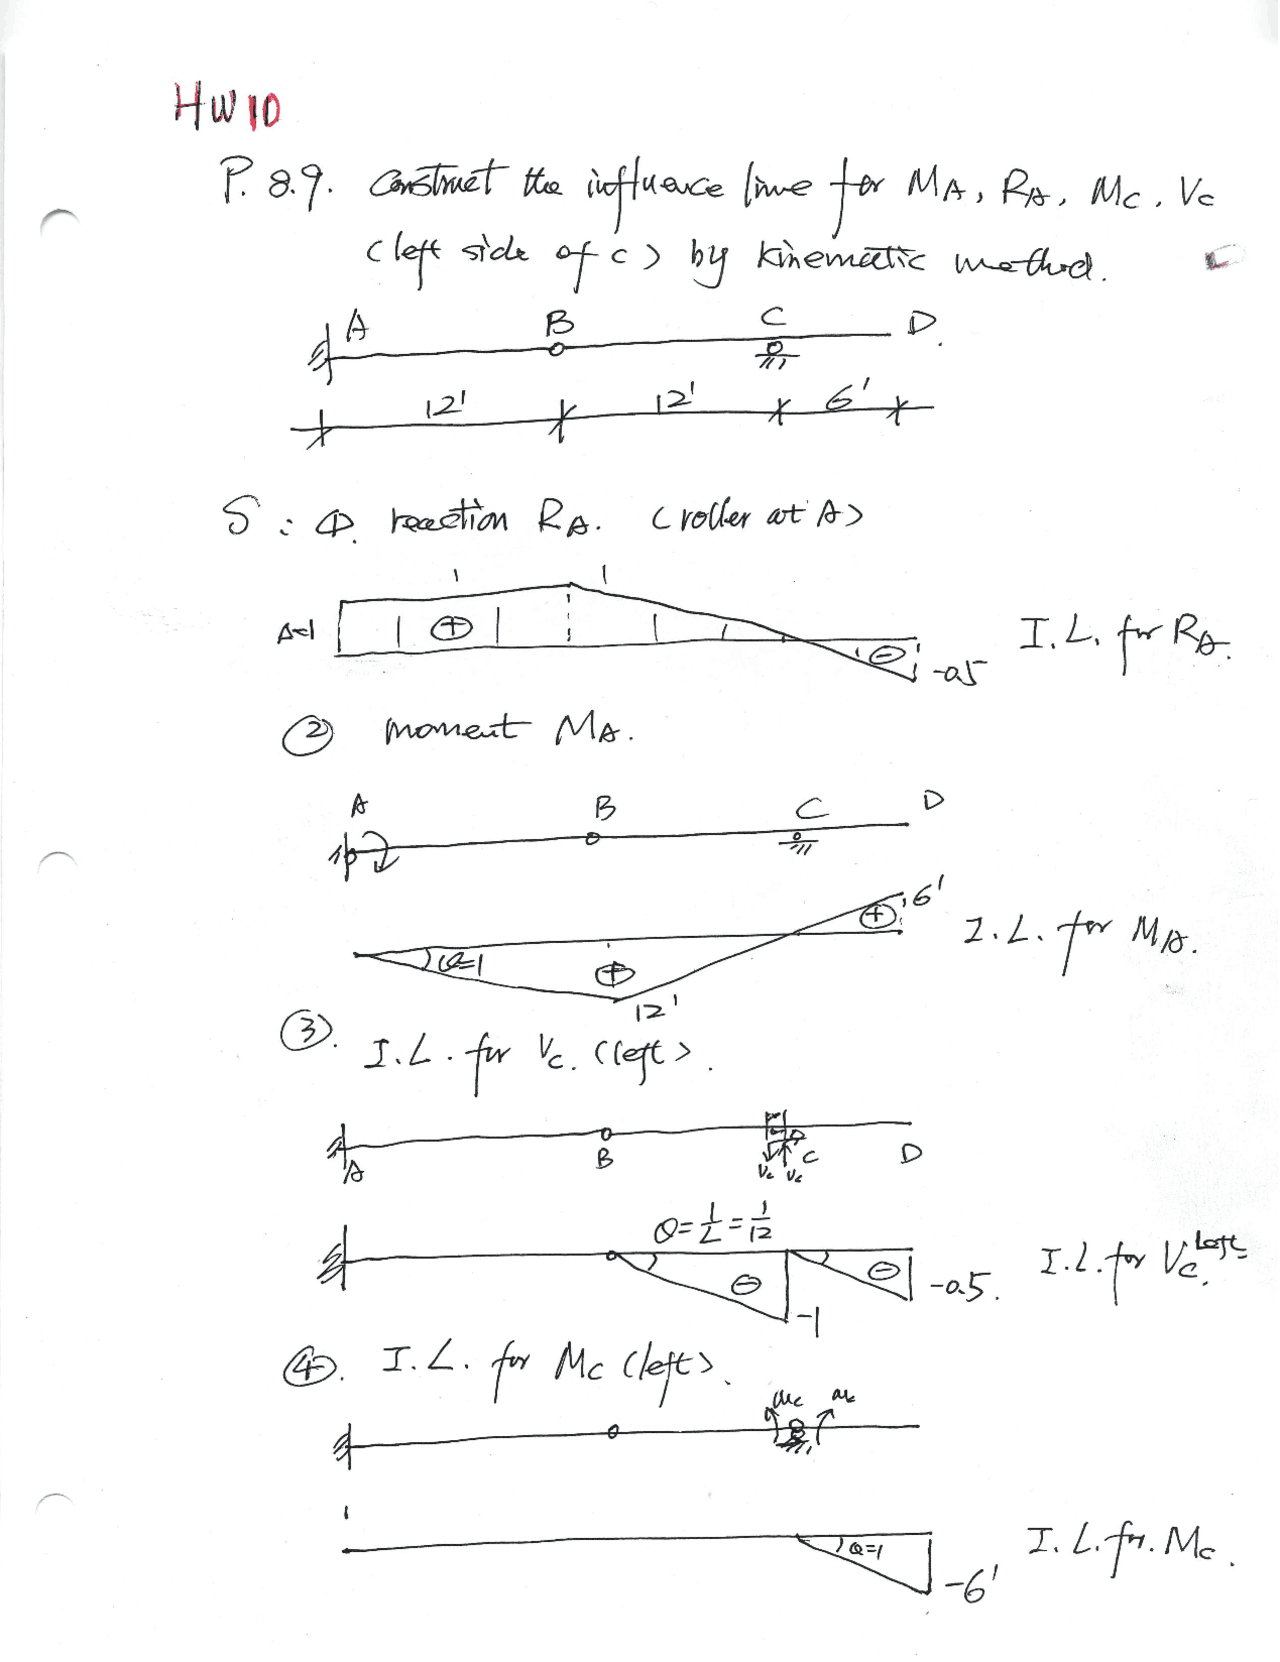 HW10
P. 8.9. Construct the influence line for MA, RA, Mc, Vc
(left side of c) by kinematic method.
A B C D.
12' 12' 6'
S: ①. reaction RA. (roller at A)
1 1
Δ=1 + I.L. for RA.
- -0.5
② moment MA.
A B C D
+ 6'
θ=1 + I.L. for MA.
12'
③. I.L. for Vc. (left).
A B C D
Vc Vc
θ=1/L=1/12
- - -0.5. I.L. for Vc Left.
-1
④. I.L. for Mc (left).
Mc Mc
θ=1 I.L. for. Mc.
-6'